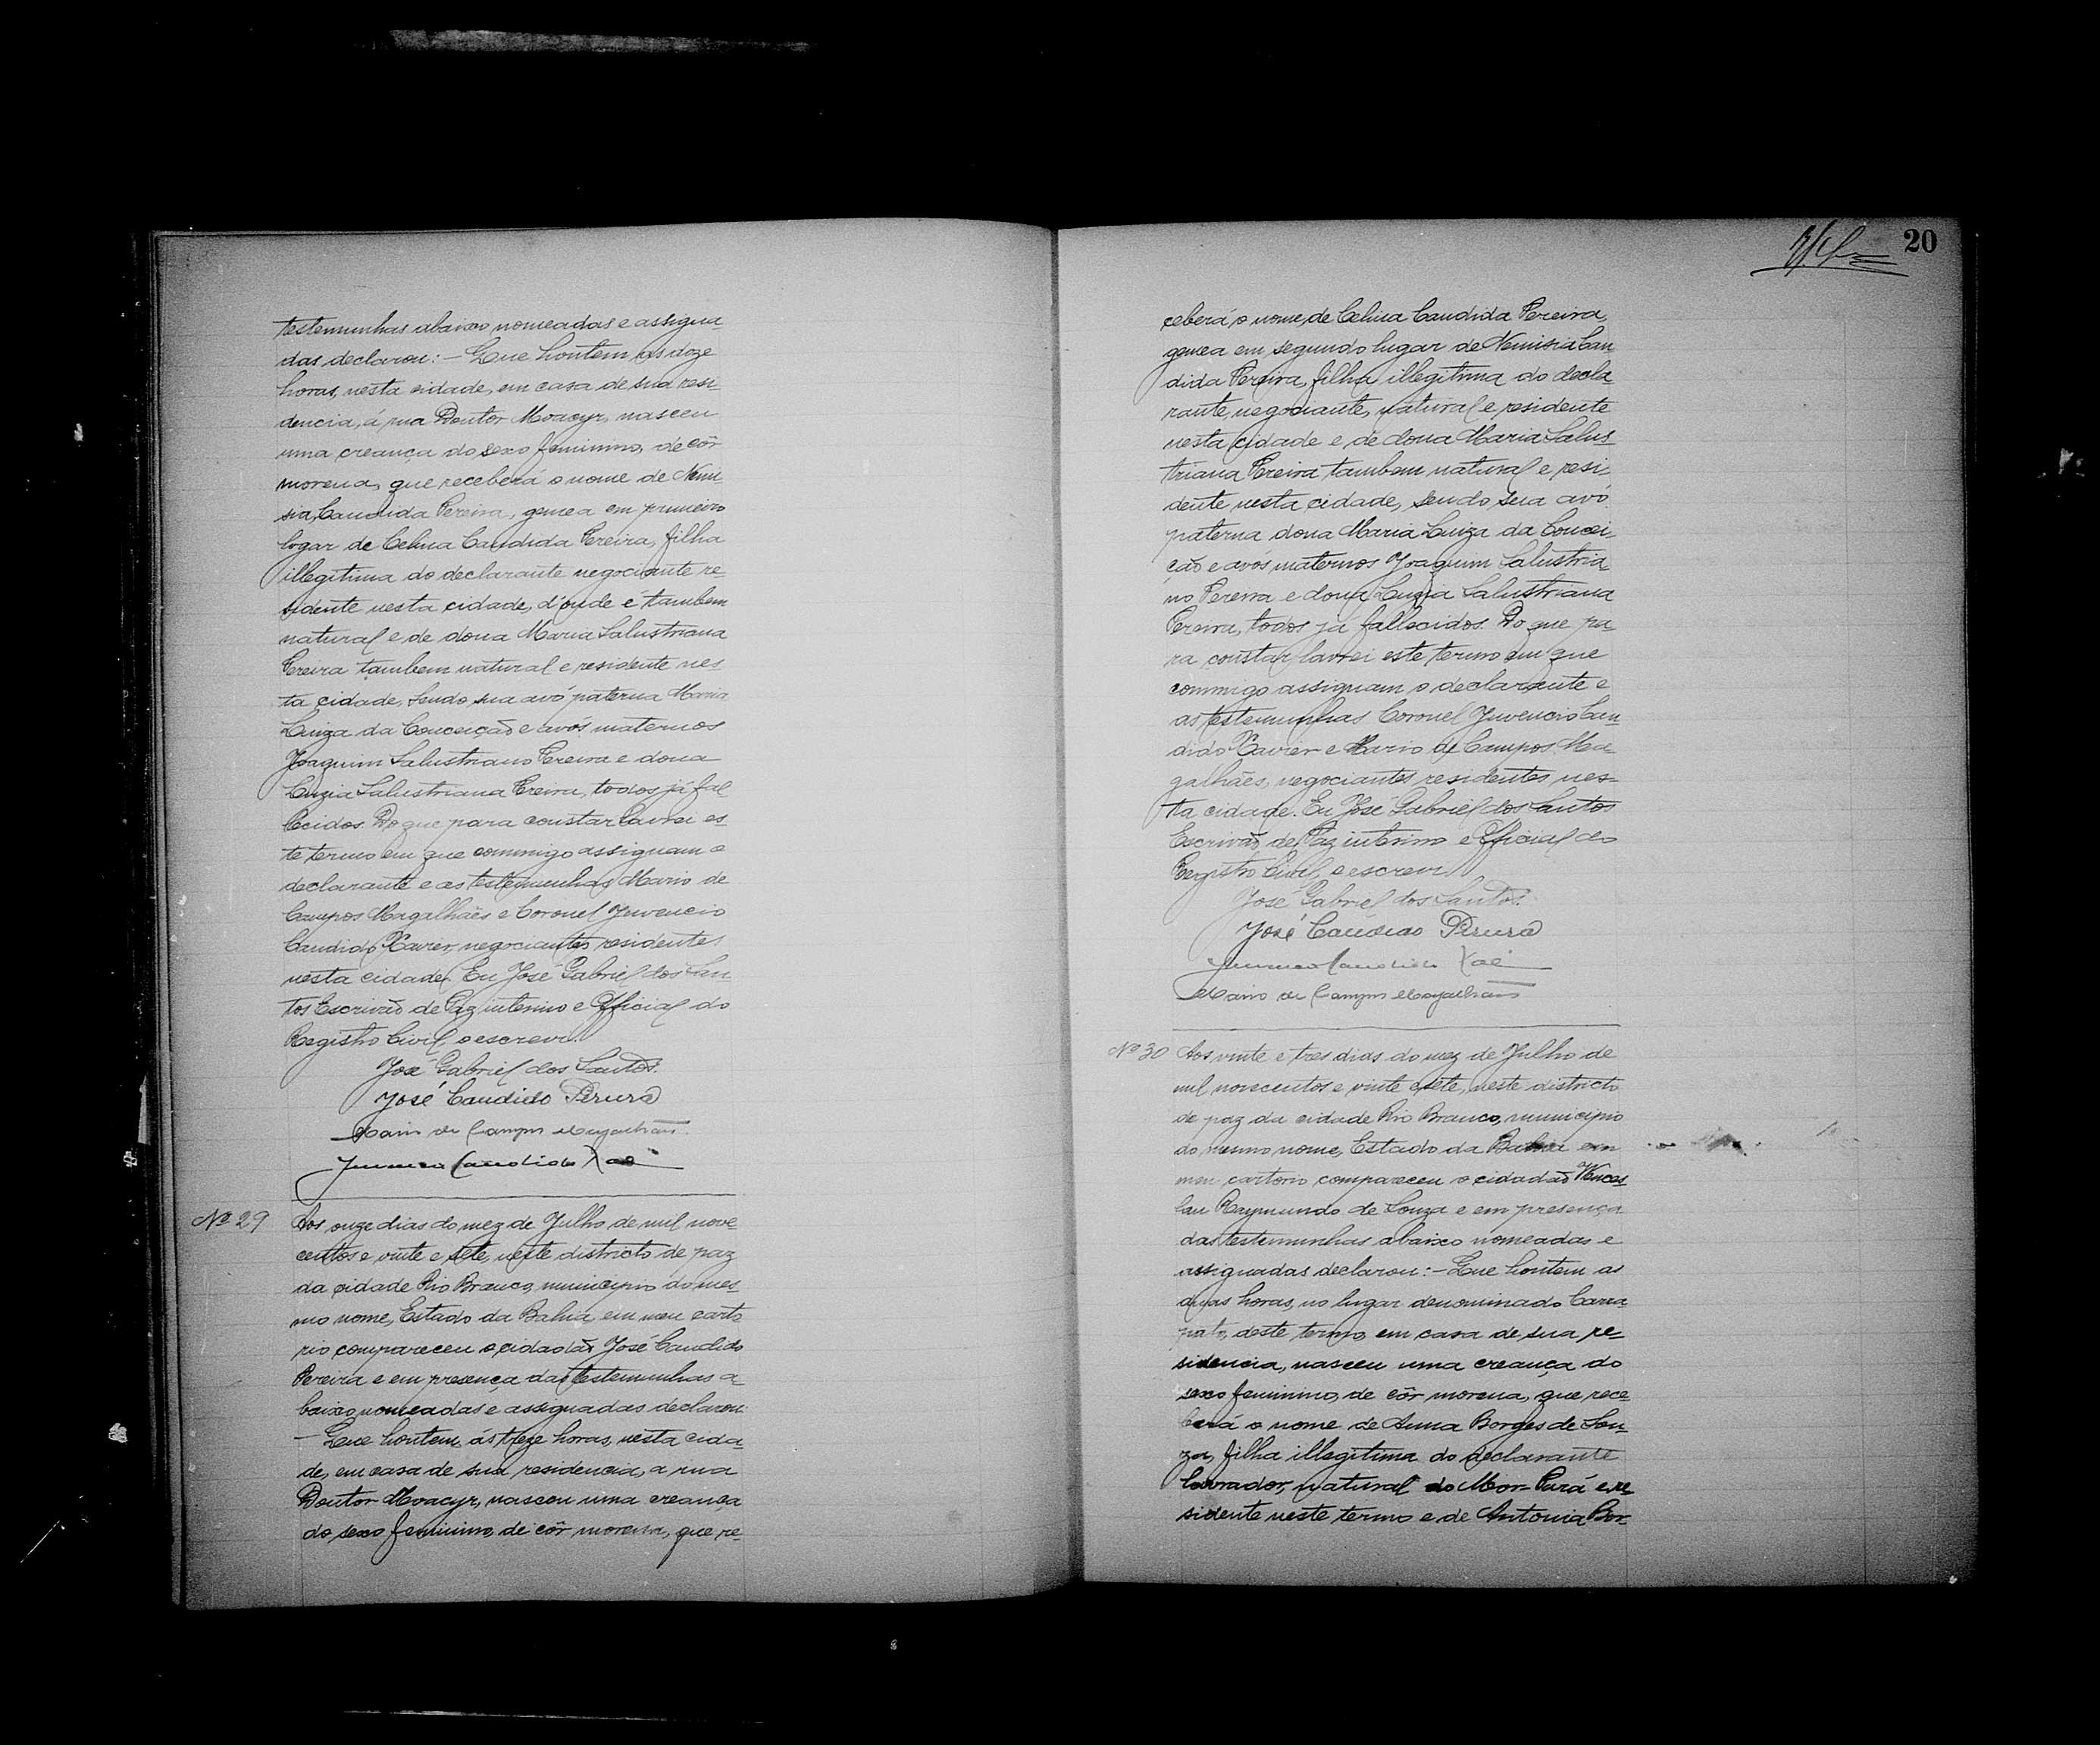 testemunhas abaixo nomeadas e assigna-
das declarou: – Que hontem, ás doze
horas, nesta cidade, em casa de sua resi-
dencia, á rua Doutor Moacyr, nasceu
uma creança do sexo feminino, de côr
morena, que receberá o nome de Nemi-
sia Candida Pereira, gemea em primeiro
logar de Celina Candida Pereira, filha
illegitima do declarante negociante re-
sidente nesta cidade, d'onde é tambem
natural e de dona Maria Salustriana
Pereira tambem natural e residente nes-
ta cidade, sendo sua avó paterna Maria
Luiza da Conceição e avós maternos
Joaquim Salustriano Pereira e dona
Luzia Salustriana Pereira, todos já fal-
lecidos. Do que para constar lavrei es-
te termo em que commigo assignam o
declarante e as testemunhas Mario de
Campos Magalhães e Coronel Juvencio
Candido Xavier, negociantes, residentes
nesta cidade. Eu José Gabriel dos San-
tos Escrivão de Paz interino e Official do
Registro Civil, o escrevi.
José Gabriel dos Santos.
José Candido Pereira
Mario de Campos Magalhães.
Juvencio Candido Xae
Nº 29 Aos onze dias do mez de Julho de mil nove-
centos e vinte e sete, neste districto de paz
da cidade Rio Branco, municipio do mes-
mo nome, Estado da Bahia, em meu carto-
rio compareceu o cidadão José Candido
Pereira e em presença das testemunhas a-
baixo nomeadas e assignadas declarou:
– Que hontem, ás treze horas, nesta cida-
de, em casa de sua residencia, a rua
Doutor Moacyr, nasceu uma creança
do sexo feminino, de côr morena, que re-
20
ceberá o nome de Celina Candida Pereira,
gemea em segundo lugar de Nemisia Can-
dida Pereira, filha illegitima do decla-
rante, negociante, natural e residente
nesta cidade e de dona Maria Salus-
triana Pereira tambem natural e resi-
dente nesta cidade, sendo sua avó
paterna dona Maria Luiza da Concei-
ção e avós maternos Joaquim Salustria-
no Pereira e dona Luzia Salustriana
Pereira, todos já fallecidos. Do que pa-
ra constar lavrei este termo em que
commigo assignam o declarante e
as testemunhas Coronel Juvencio Can-
dido Xavier e Mario de Campos Ma-
galhães, negociantes residentes nes-
ta cidade. Eu José Gabriel dos Santos
Escrivão de Paz interino e Official do
Registro Civil, o escrevi
José Gabriel dos Santos.
José Candido Pereira
Juvencio Candido Xae
Mario de Campos Magalhães
Nº 30 Aos vinte e tres dias do mez de Julho de
mil novecentos e vinte e sete, neste districto
de paz da cidade Rio Branco, municipio
do mesmo nome, Estado da Bahia em
meu cartorio compareceu o cidadão Vences-
lau Raymundo de Souza e em presença
das testemunhas abaixo nomeadas e
assignadas declarou: – Que hontem as
duas horas, no lugar denominado Carra-
pato, deste termo, em casa de sua re-
sidencia, nasceu uma creança do
sexo feminino, de côr morena, que rece-
berá o nome de Anna Borges de Sou-
za, filha illegitima do declarante
lavrador, natural do Mor-Pará e re-
sidente neste termo e de Antonia Bor-